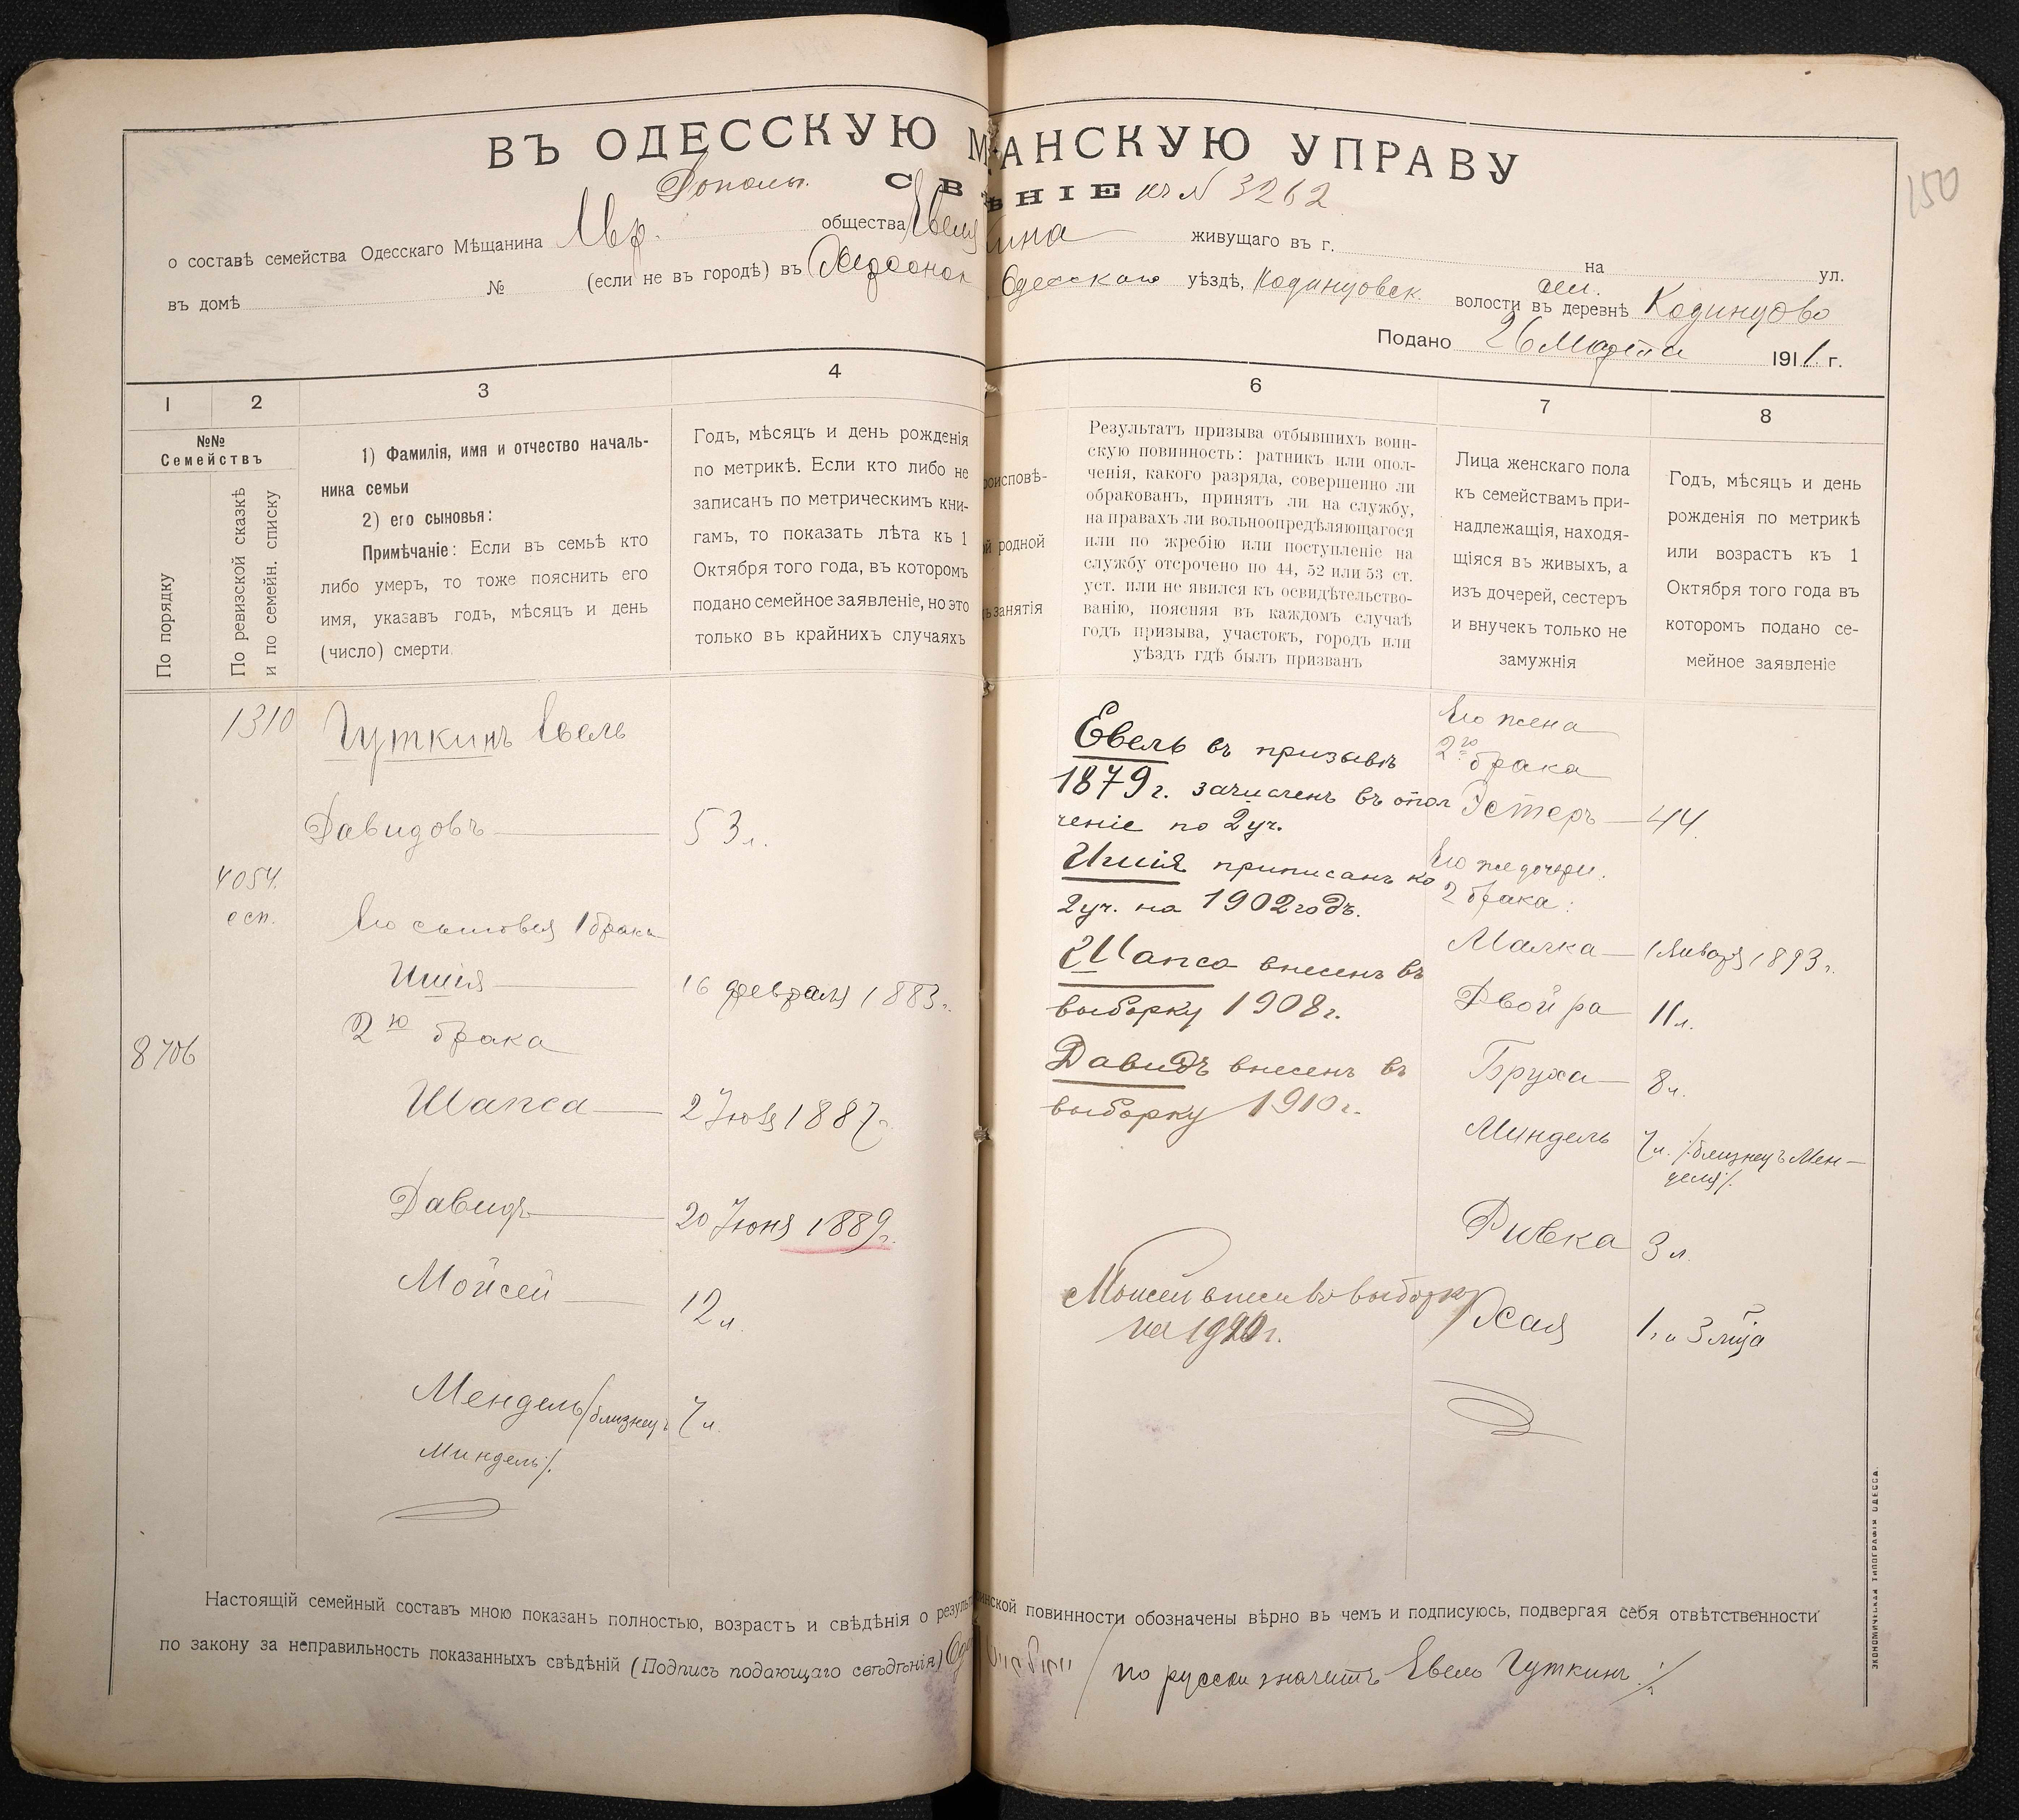 150
ВЪ ОДЕССКУЮ М АНСКУЮ УПРАВУ
Дополн. СВ ѢНІЕ къ № 3262
о составѣ семейства Одесскаго Мѣщанина Евр. общества Евеля ина живущаго въ г. на ул.
въ домѣ № (если не въ городѣ) въ Херсонск Одесскаго уѣздѣ, волости въ деревнѣ сел.
Подано 26 Марта 1911 г.
1 2 3 4 6 7 8
№№
Семействъ
По порядку
По ревизской сказкѣ
и по семейн. списку
1) Фамилія, имя и отчество началь-
ника семьи
2) его сыновья:
Примѣчаніе: Если въ семьѣ кто
либо умеръ, то тоже пояснить его
имя, указавъ годъ, мѣсяцъ и день
(число) смерти.
Годъ, мѣсяцъ и день рожденія
по метрикѣ. Если кто либо не
записанъ по метрическимъ кни-
гамъ, то показать лѣта къ 1
Октября того года, въ которомъ
подано семейное заявленіе, но это
только въ крайнихъ случаяхъ
роисповѣ-
ой родной
занятія
Результатъ призыва отбывшихъ воин-
скую повинность: ратникъ или опол-
ченія, какого разряда, совершенно ли
обракованъ, принятъ ли на службу,
на правахъ ли вольноопредѣляющагося
или по жребію или поступленіе на
службу отсрочено по 44, 52 или 53 ст.
уст. или не явился къ освидѣтельство-
ванію, поясняя въ каждомъ случаѣ
годъ призыва, участокъ, городъ или
уѣздъ гдѣ былъ призванъ
Лица женскаго пола
къ семействамъ при-
надлежащія, находя-
щіяся въ живыхъ, а
изъ дочерей, сестеръ
и внучекъ только не
замужнія
Годъ, мѣсяцъ и день
рожденія по метрикѣ
или возрастъ къ 1
Октября того года въ
которомъ подано се-
мейное заявленіе
1310
Гуткинъ Евель
Давидовъ 53 л.
4054
Его сыновья 1 брака
Ишія 16 февраля 1883 г.
2го брака
8706
Шапса 2 1887 г.
Давидъ 20 Іюня 1889 г.
Мойсей 12 л.
Мендель /близнецъ 7 л.
Миндель/.
Евель въ призывъ
1879 г. зачисленъ въ опол
ченіе по 2 уч.
Ишія приписанъ ко
2 уч. на 1902 годъ.
Шапса внесенъ въ
выборку 1908 г.
Давидъ внесенъ въ
выборку 1910 г.
Моисей внесен во выборку
на 1920 г.
Его жена
2го брака
Эстеръ — 44.
Его же дочери
2 брака:
Малка — 1 Января 1893 г.
Двойра 11 л.
Бруха — 8 л.
Миндель 7 л. /близнецъ Мен-
деля/.
Ривка 3 л.
Хая 1 г. и 3 м-ца
Настоящій семейный составъ мною показанъ полностью, возрастъ и свѣдѣнія о результ инской повинности обозначены вѣрно въ чемъ и подписуюсь, подвергая себя отвѣтственности
по закону за неправильность показанныхъ свѣдѣній (Подпись подающаго свѣдѣнія) / по русски значитъ Евель Гуткинъ /.
ЭКОНОМИЧЕСКАЯ ТИПОГРАФІЯ ОДЕССА.